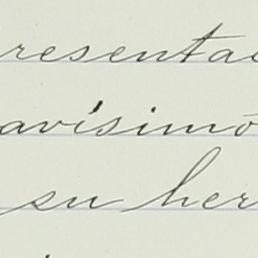 resenta
avísimo
su her